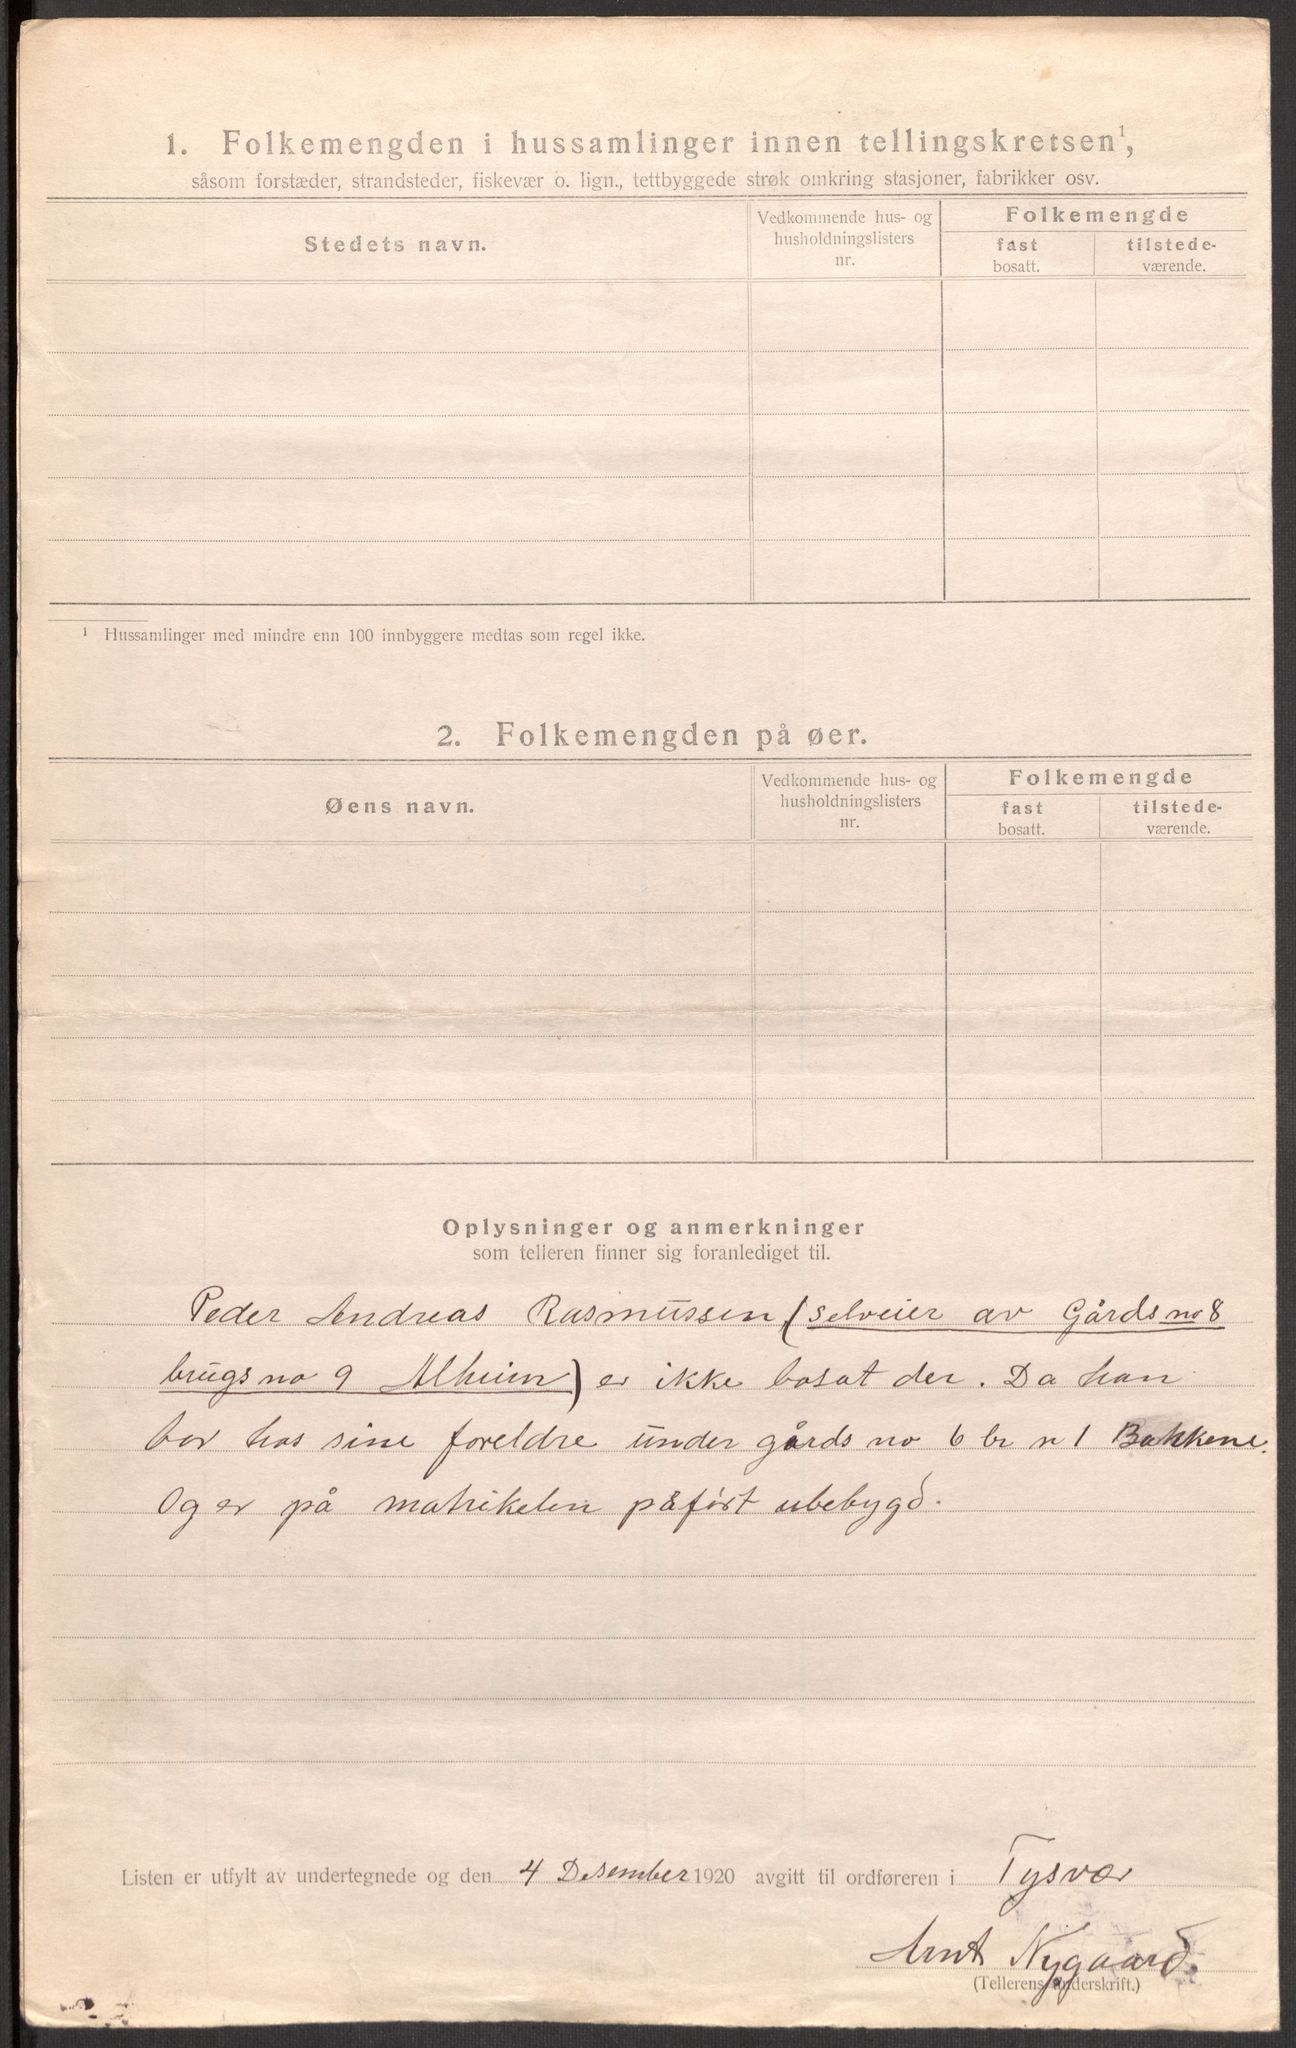 1. Folkemengden i hussamlinger innen tellingskretsen¹,
såsom forstæder, strandsteder, fiskevær o. lign., tettbyggede strøk omkring stasjoner, fabrikker osv.
Stedets navn.
Vedkommende hus- og
husholdningslisters
nr.
Folkemengde
fast
bosatt.
tilstede-
værende.
¹ Hussamlinger med mindre enn 100 innbyggere medtas som regel ikke.
2. Folkemengden på øer.
Øens navn.
Vedkommende hus- og
husholdningslisters
nr.
Folkemengde
fast
bosatt.
tilstede-
værende.
Oplysninger og anmerkninger
som telleren finner sig foranlediget til.
Peder Andreas Rasmussen, (selveier av Gårds no 8
brugs no 9 Alheim) er ikke bosat der. Da han
bor hos sine foreldre under gårds no 6 br n 1 Bakkene.
Og er på matrikelen påført ubebygd.
Listen er utfylt av undertegnede og den 4 Desember 1920 avgitt til ordføreren i Tysvær
Arnt Nygaard
(Tellerens underskrift.)